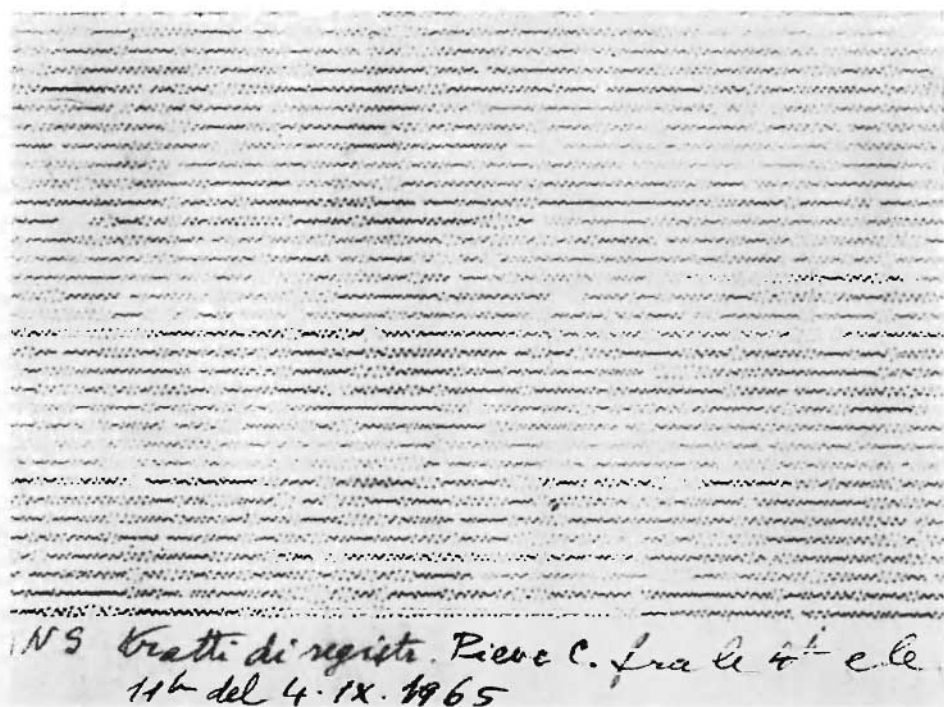 NS tratti di registr. Pieve C. fra le 4h e le
11h del 4.IX.1965